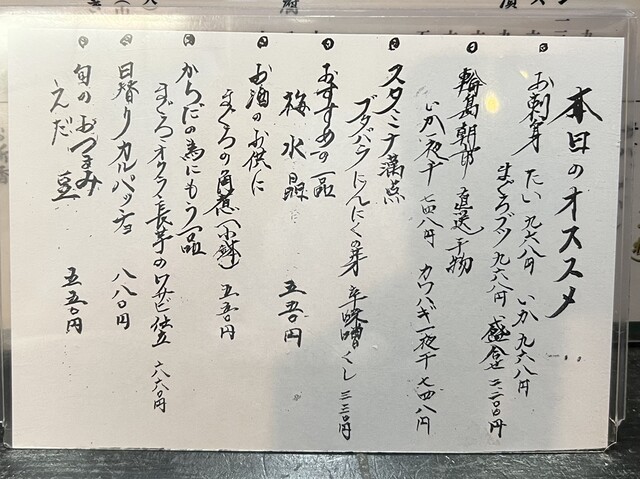 本日のオススメ
お刺身 たい 九六八円 いか 九六八円
まぐろブツ 九六八円 盛合せ 二二〇〇円
輪島朝市 直送干物
いか一夜干 七四八円 カワハギ一夜干 七四八円
スタミナ満点
ブタバラにんにくの芽 辛味噌 三三〇円
おすすめの一品
梅水晶 五五〇円
お酒のお供に
まぐろの角煮(小鉢) 五五〇円
からだの為にもう一品
まぐろ・オクラ・長芋のワサビ仕立 六六〇円
日替りカルパッチョ 八八〇円
旬のおつまみ
えだ豆 五五〇円